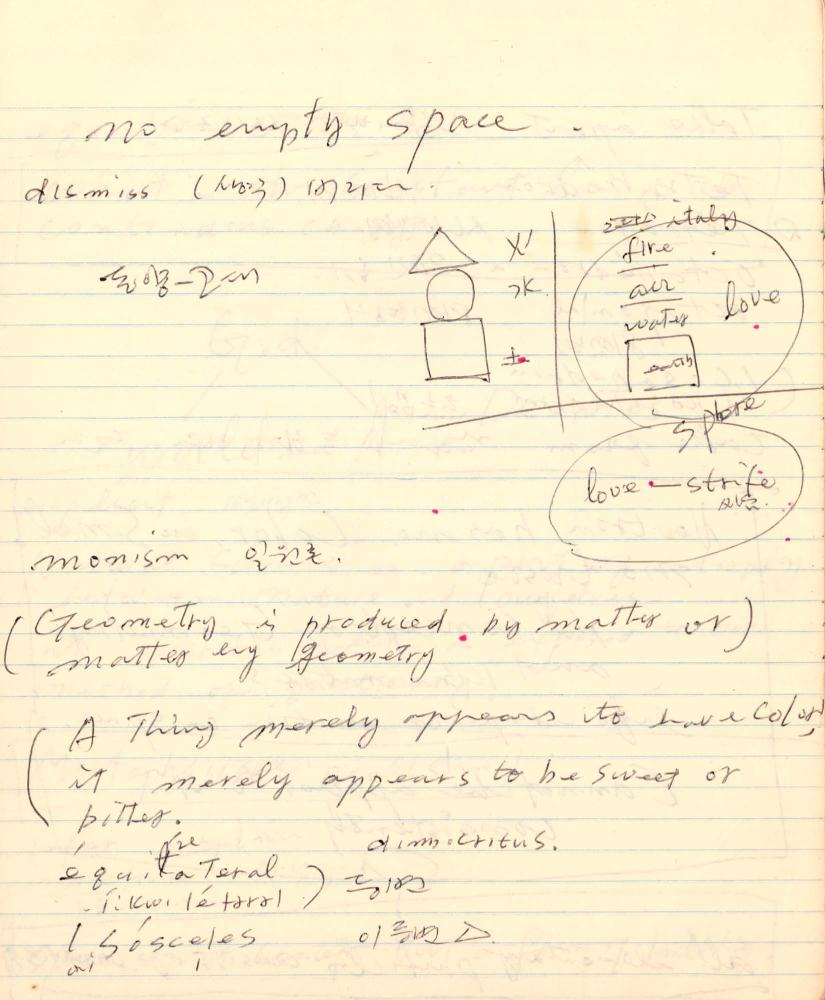 no empty space .
dismiss (생략) 버리다.
fire
air
water
earth
love
sphere
love — strife
monism 일원론.
(Geometry is produced by matter or)
matter by geometry
(A Thing merely appears to have color,
it merely appears to be sweet or
bitter.
dimocritus.
équilaTeral ) 등변
isósceles 이등변 △